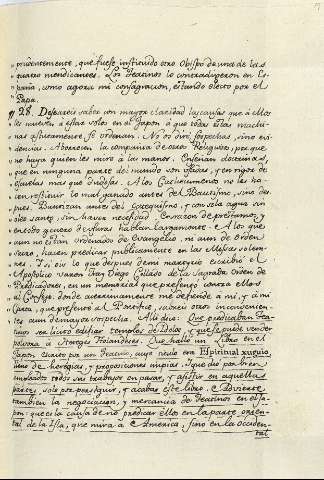 prudentemente, que fuese instituido otro Obispo de una de las
quatro mendicantes. Los Jesuitas lo contradugeron en Es-
paña, como agora mi consagracion, estando electo por el
Papa.
28. Desearéis saber con mayor claridad las causas que à ellos
les mueven à estàr solos en el Japon, à que todas estas machi-
nas astutamente se ordenan. No os diré sospechas, sino evi-
dencias. Aborrecen la compañia de otros Religiosos, porque
no haya quien les mire à las manos. Enseñan doctrinas,
que en ninguna parte del mundo son oìdas, y en rigor de
Escuelas mas que
no restituir lo mal ganado antes del Bautismo, sino des-
pues Bautizan antes del Catequismo, y con sola agua sin
oleo santo, sin haver necesidad. Contratos de prestamos, y
en todo genero de usuras hablan largamente. A los que
aun no estàn ordenados de Evangelio, ni aun de orden
Sacro, hacen predicar publicamente en las Missas solem-
nes. Y si oìs lo que despues de mi martyrio escribio el
Apostolico varon Fray Diego Collado de la Sagrada Orden de
Predicadores, en un memorial que presentò contra ellos
al Consejo, donde acerrimamente me defiende à mi, y à mi
causa, que prefiero al Pontifice, sabreis otros inconvenien-
tes aun de mayor sospecha. Alli dice: Que predicaban Jea-
tinos ser licito edificar templos de Idolos, y que se puede vender
polvora à Hereges Holandeses. Que hallò un Libro en el
Japon escrito por un Jesuita, cuyo titulo era Espiritual xuguio,
lleno de heregias, y proposiciones impias.
todos sus trabajos en parar, y assistir en aquella
partes, solo por perseguir, y acabar este libro. Advierte
tambien la negociacion, y mercancia de Jesuitas en el Ja-
pon: que es la causa de no predicar ellos en la parte orien-
tal de la Isla, que mira à America, sino en la occiden-
tal